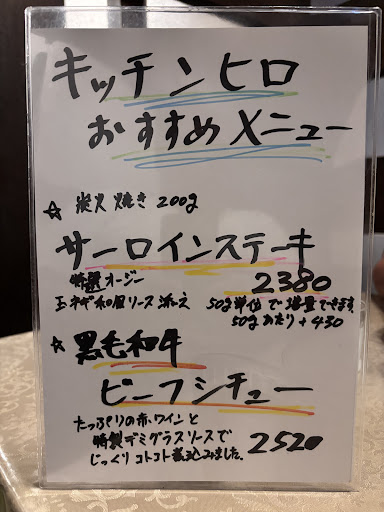 キッチンヒロ
おすすめメニュー
☆ 炭火焼き 200g
サーロインステーキ
特選オージー 2380
玉ネギ和風ソース添え 50g単位で増量できます
50gあたり+430
★ 黒毛和牛
ビーフシチュー
たっぷりの赤ワインと
特製デミグラスソースで
じっくりコトコト煮込みました。 2520